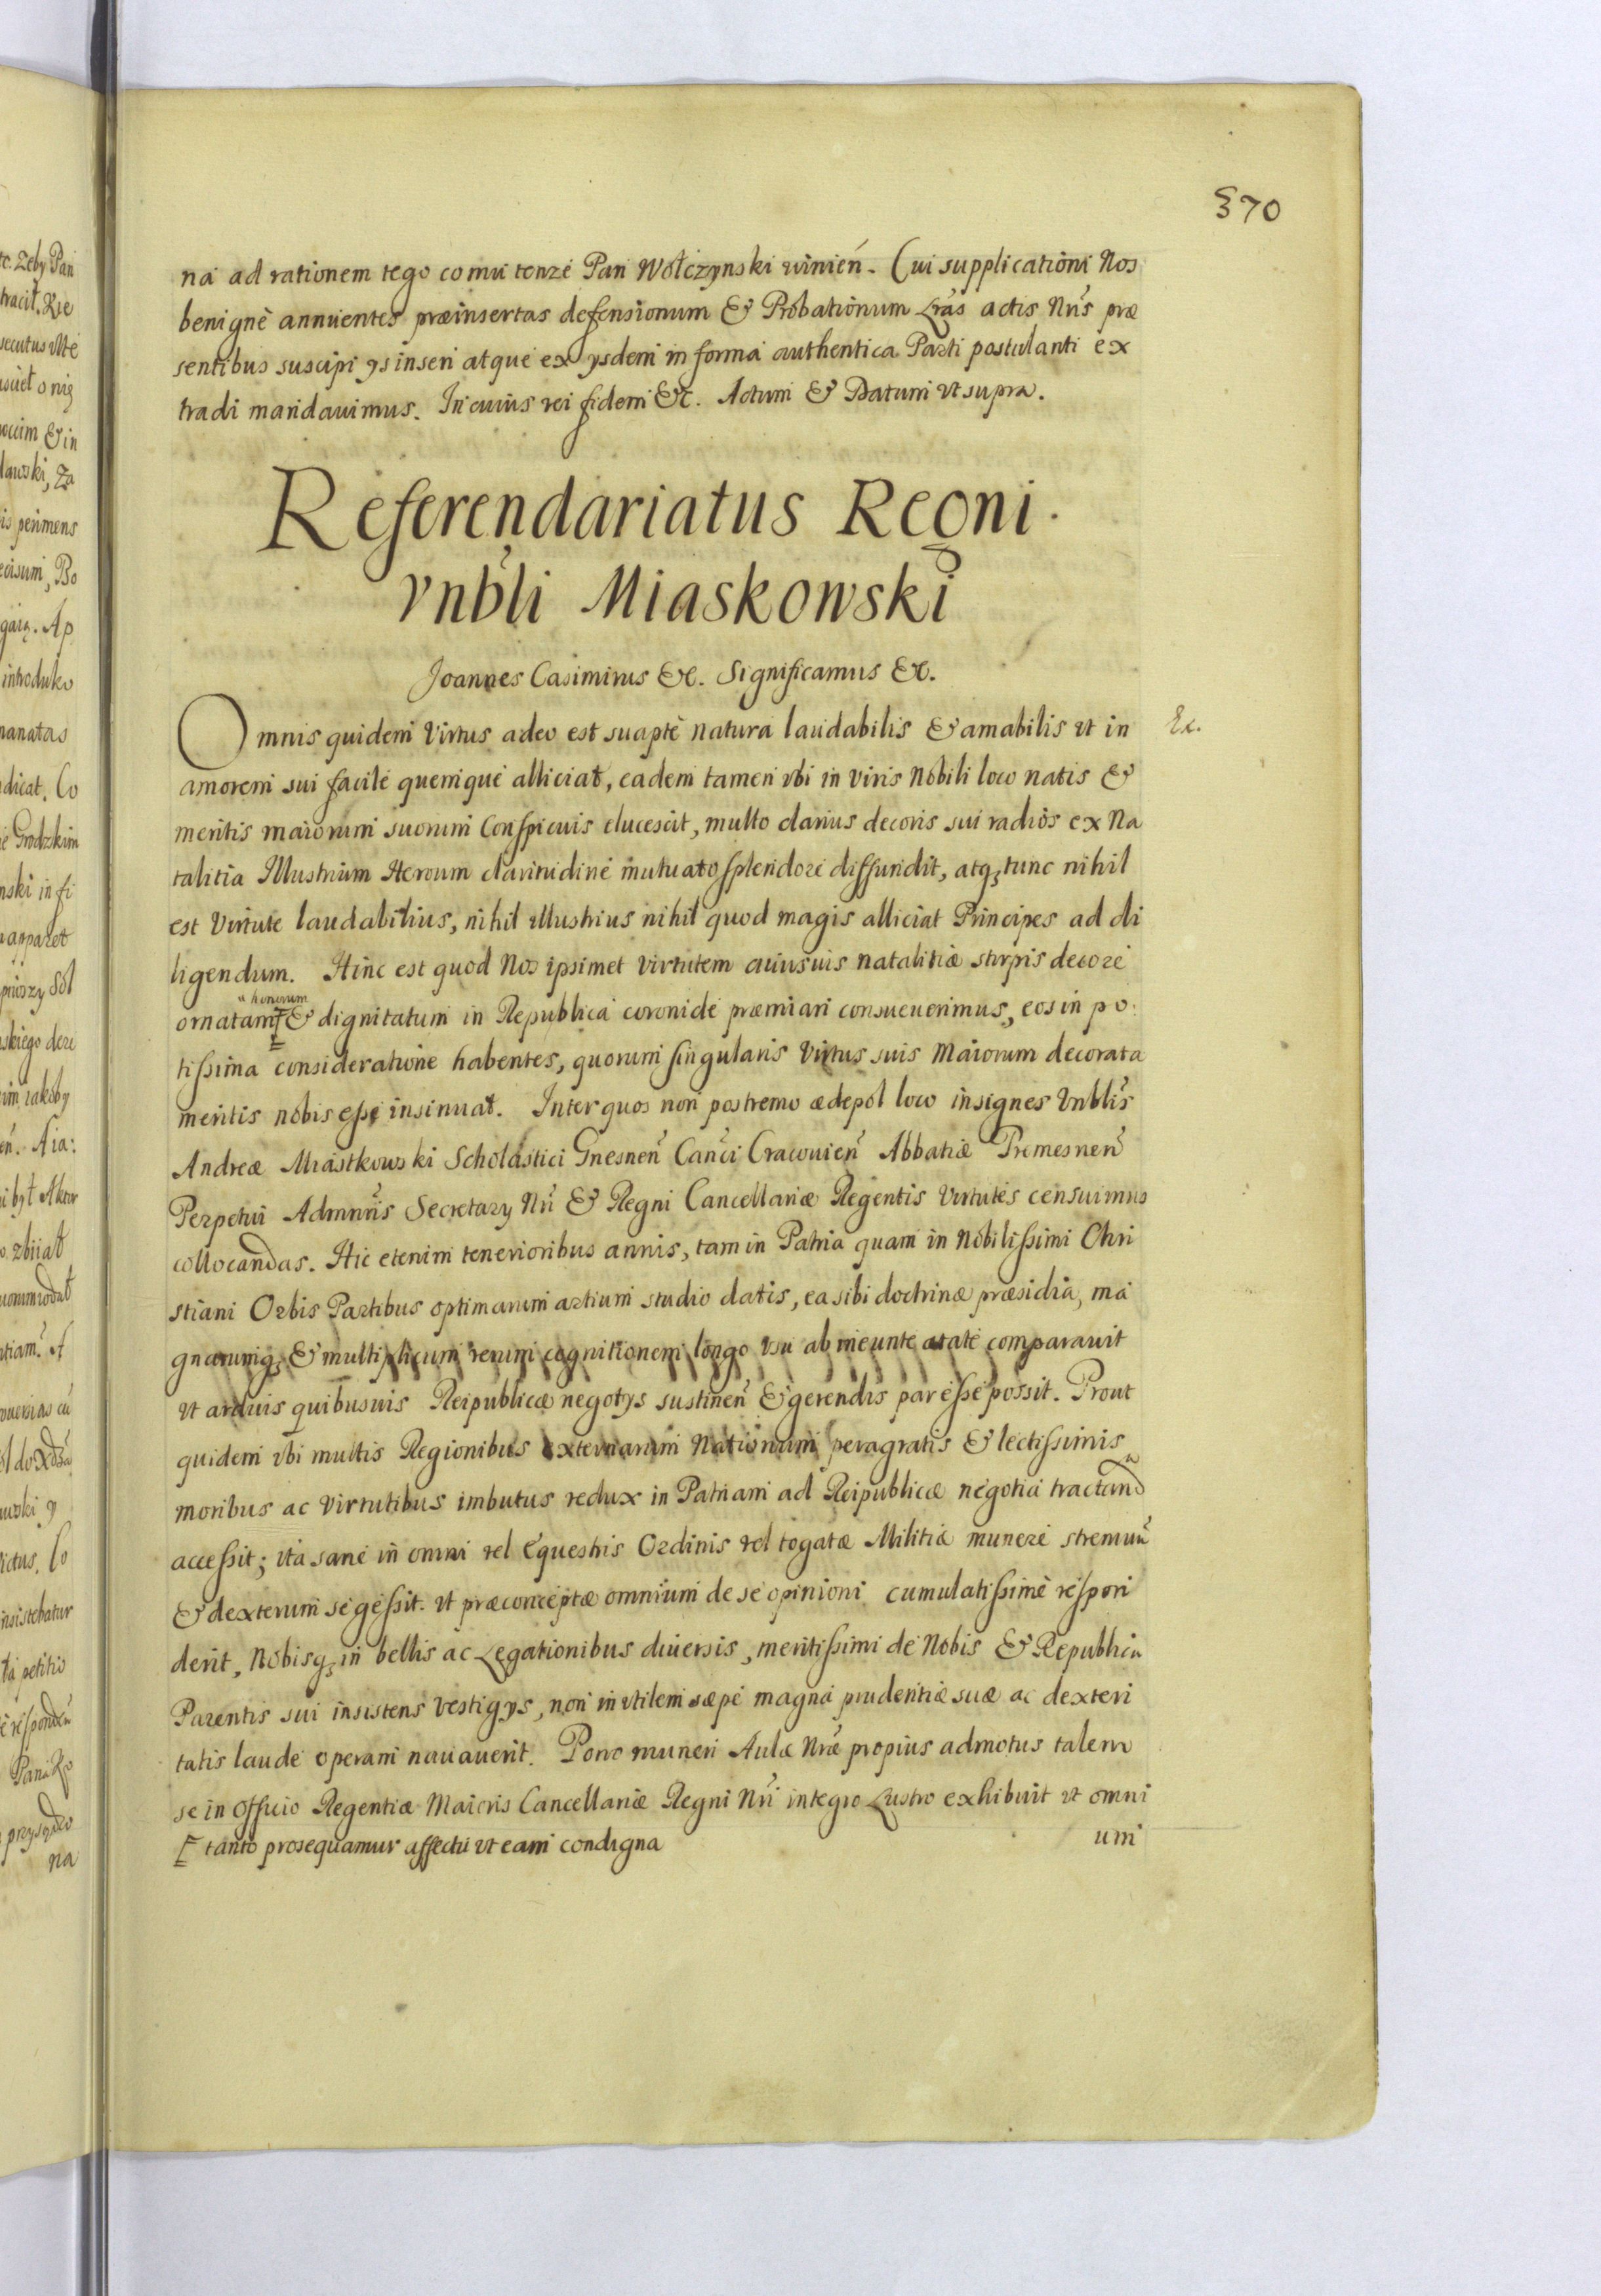 370
na ad rationem tego co mu tenze Pan Wołczynski winien. Cui supplicationi Nos
benignè annuentes præinsertas defensionum & Probationum Lras actis Nris præ
sentibus suscipi ys inseri atque ex ysdem in forma authentica Parti postulanti ex
tradi mandauimus. In cuius rei fidem &c. Actum & Datum vt supra.
Referendariatus Regni.
Vnbli Miaskowski
Joannes Casimirus &c. Significamus &c.
Omnis quidem Virtus adeo est suaptè natura laudabilis & amabilis vt in
Ex.
amorem sui facile quemque alliciat, eadem tamen vbi in viris Nobili loco natis &
meritis maiorum suorum Conspicuis elucescit, multo clarius decoris sui radios ex Na
talitia Illustrium Heroum claritudine mutuato splendore diffundit, atq; tunc nihil
est Virtute laudabilius, nihil illustrius nihil quod magis alliciat Principes ad di
ligendum. Hinc est quod Nos ipsimet virtutem auiusuis natalitiæ stirpis decore
honorum
ornatam & dignitatum in Republica coronide præmiari consueuerimus, eos in po
tissima consideratione habentes, quorum singularis Virtus suis Maiorum decorata
meritis nobis esse insinuat. Inter quos non postremo ædepol loco insignes Vnblis
Andreæ Miastkowski Scholastici Gnesnen Canci Cracouien Abbatiæ Premesnen
Perpetui Admnris Secretary Nri & Regni Cancellariæ Regentis virtutes censuimus
collocandas. Hic etenim tenerioribus annis, tam in Patria quam in Nobilissimi Chri
stiani Orbis Partibus optimarum artium studio datis, ea sibi doctrinæ præsidia, ma
gnarumq; & multiplicum rerum cognitionem longo vsu ab ineunte ætate comparauit
vt arduis quibusuis Reipublicæ negotys sustinen & gerendis par esse possit. Prout
quidem vbi multis Regionibus externarum Nationum peragratis & lectissimis
moribus ac virtutibus imbutus redux in Patriam ad Reipublicæ negotia tractand
accessit; ita sane in omni vel Equestris Ordinis vel togatæ Militiæ munere strenuu
& dexterum se gessit. vt præconceptæ omnium de se opinioni cumulatissimè respon
derit, Nobisq; in bellis ac Legationibus diuersis, meritissimi de Nobis & Republica
Parentis sui insistens vestigys, non invtilem sæpe magna prudentiæ suæ ac dexteri
tatis laude operam nauauerit. Porro muneri Aulæ Nræ propius admotus talem
se in officio Regentiæ Maioris Cancellariæ Regni Nri integro Lustro exhibuit vt omni
um
tanto prosequamur affectu vt eam condigna